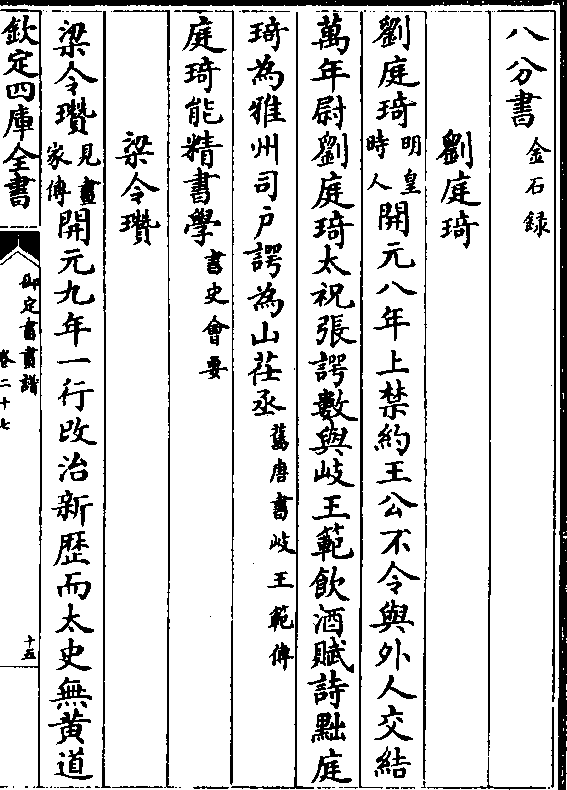 八分書金石録
劉庭琦
劉庭琦明皇時人開元八年上禁約王公不令與外人交結
萬年尉劉庭琦太祝張諤數與岐王範飲酒賦詩黜庭
琦為雅州司户諤為山茌丞舊唐書岐王範傳
庭琦能精書學書史會要
梁令瓚
梁令瓚見畫家傳開元九年一行改治新歴而太史無黄道
欽定四庫全書
御定書畫譜
卷二十七
十五